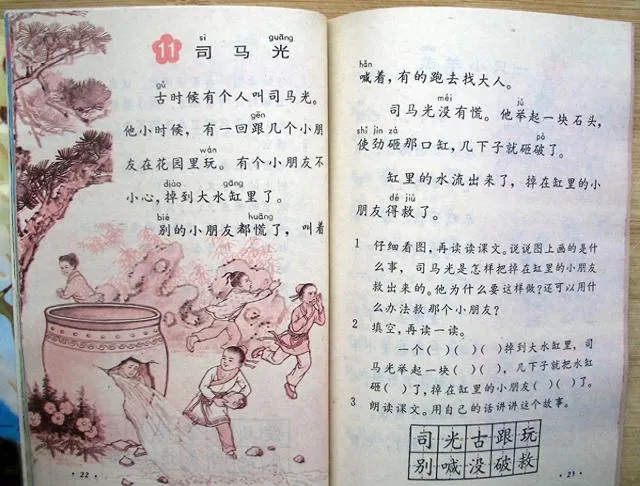 11 司马光
sī guāng
gǔ
古时候有个人叫司马光。
gēn
他小时候，有一回跟几个小朋
wán
友在花园里玩。有个小朋友不
diào gāng
小心，掉到大水缸里了。
bié huāng
别的小朋友都慌了，叫着
· 22 ·
hǎn
喊着，有的跑去找大人。
méi jǔ
司马光没有慌。他举起一块石头，
shǐ jìn zá pò
使劲砸那口缸，几下子就砸破了。
缸里的水流出来了，掉在缸里的小
dé jiù
朋友得救了。
1 仔细看图，再读读课文。说说图上画的是什
么事，司马光是怎样把掉在缸里的小朋友
救出来的。他为什么要这样做？还可以用什
么办法救那个小朋友？
2 填空，再读一读。
一个( )( )( )掉到大水缸里，司
马光举起一块( )( )，几下子就把水缸
砸( )了，掉在缸里的小朋友( )( )了。
3 朗读课文。用自己的话讲讲这个故事。
司光古跟玩
别喊没破救
· 23 ·